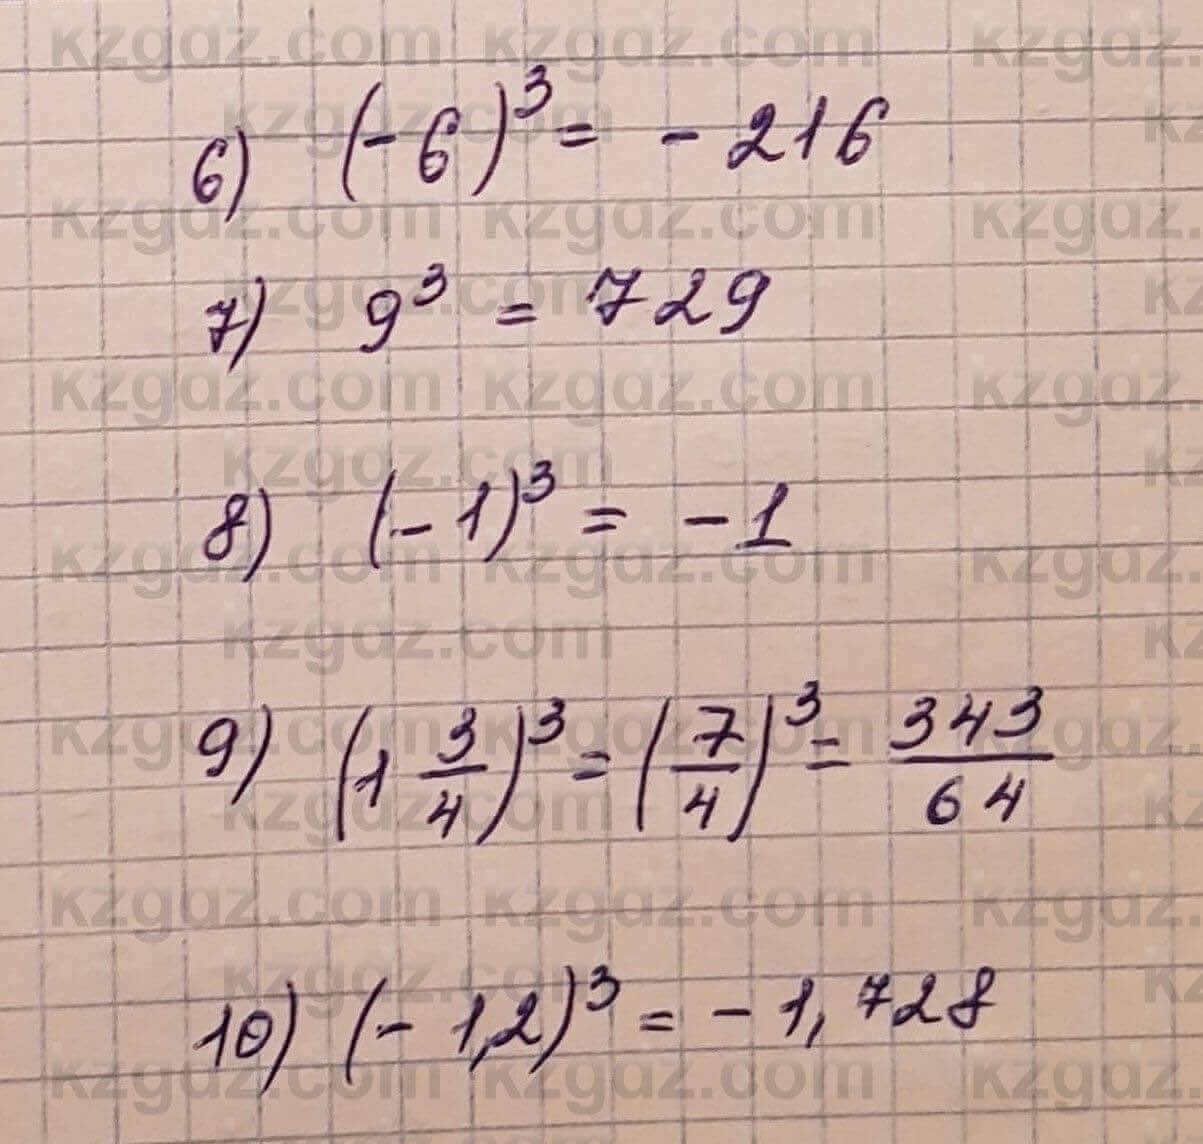 6) (-6)³ = -216
7) 9³ = 729
8) (-1)³ = -1
9) (1 3/4)³ = (7/4)³ = 343/64
10) (-1,2)³ = -1,728
kzgdz.com